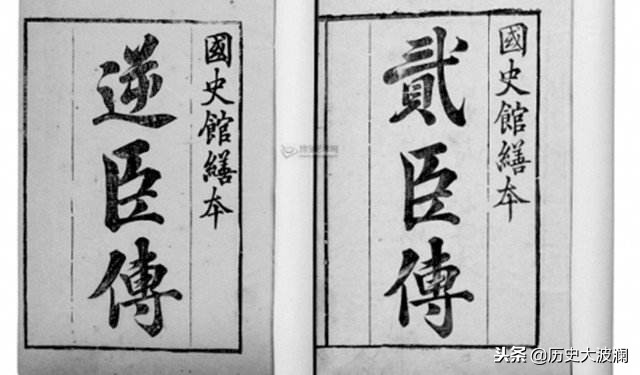 國史館繕本
貳臣傳
國史館繕本
逆臣傳
头条@历史大波澜